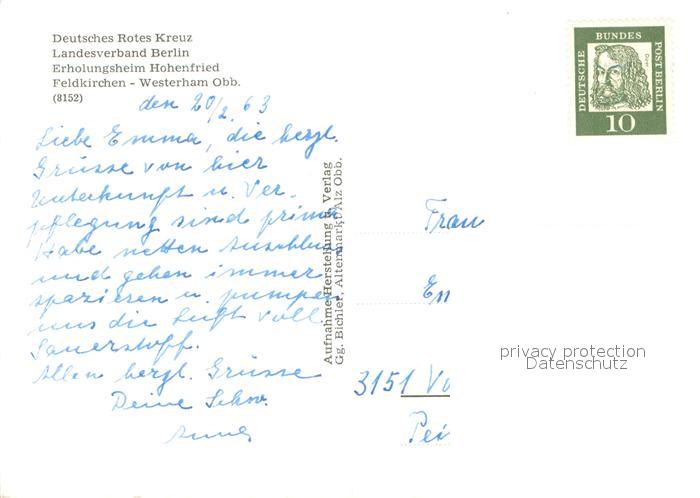 Deutsches Rotes Kreuz
Landesverband Berlin
Erholungsheim Hohenfried
Feldkirchen - Westerham Obb.
(8152)
den 20/2. 63
Liebe Emma, die herzl.
Grüsse von hier
Unterkunft u. Ver-
pflegung sind prima
Habe netten Anschluss
und gehen immer
spazieren u. pumpen
uns die Luft voll
Sauerstoff.
Allen herzl. Grüsse
Deine Schw.
Aufnahme Herstellung u. Verlag
Gg. Bichler, Altenmarkt/Alz Obb.
DEUTSCHE BUNDES POST BERLIN
Dürer
10
Frau
Em
3151 Vo
Pei
privacy protection
Datenschutz